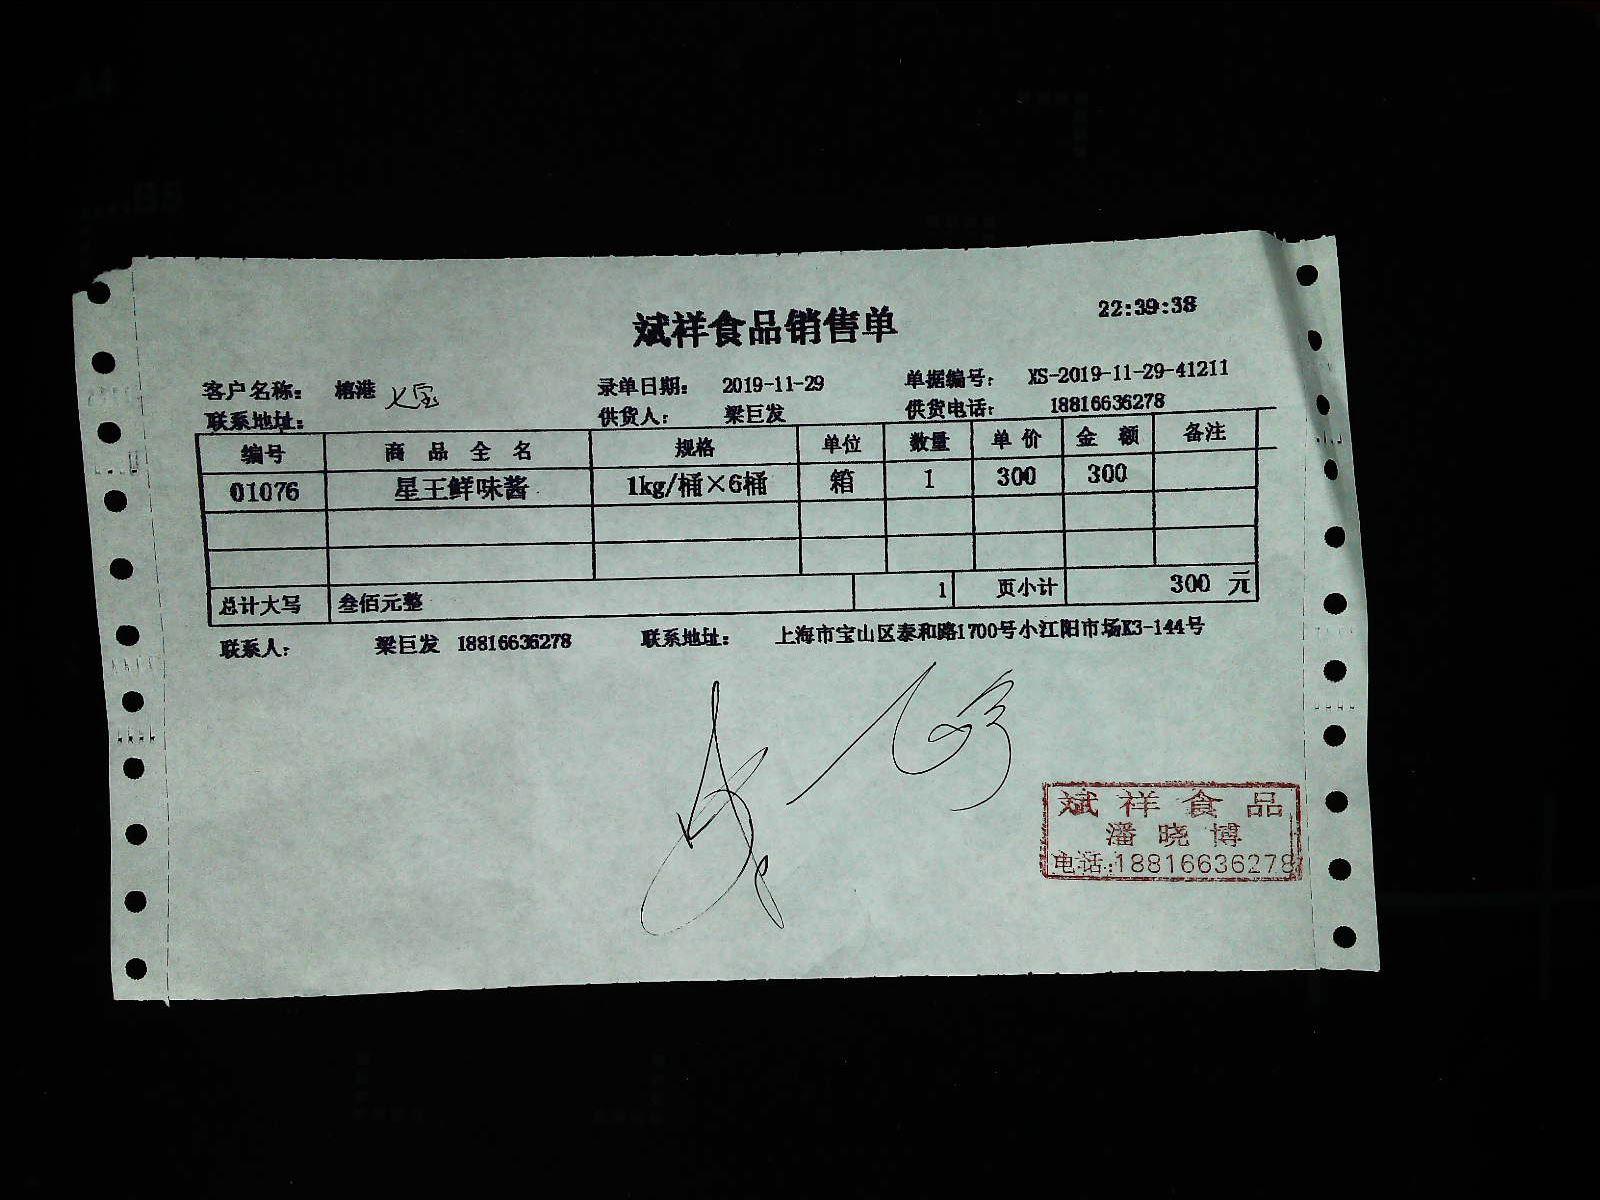 22:39:38
斌祥食品销售单
客户名称: 榕港 七宝 录单日期: 2019-11-29 单据编号: XS-2019-11-29-41211
联系地址: 供货人: 梁巨发 供货电话: 18816636278
编号 商品全名 规格 单位 数量 单价 金额 备注
01076 星王鲜味酱 1kg/桶×6桶 箱 1 300 300
总计大写 叁佰元整 1 页小计 300 元
联系人: 梁巨发 18816636278 联系地址: 上海市宝山区泰和路1700号小江阳市场K3-144号
斌祥食品
潘晓博
电话:18816636278